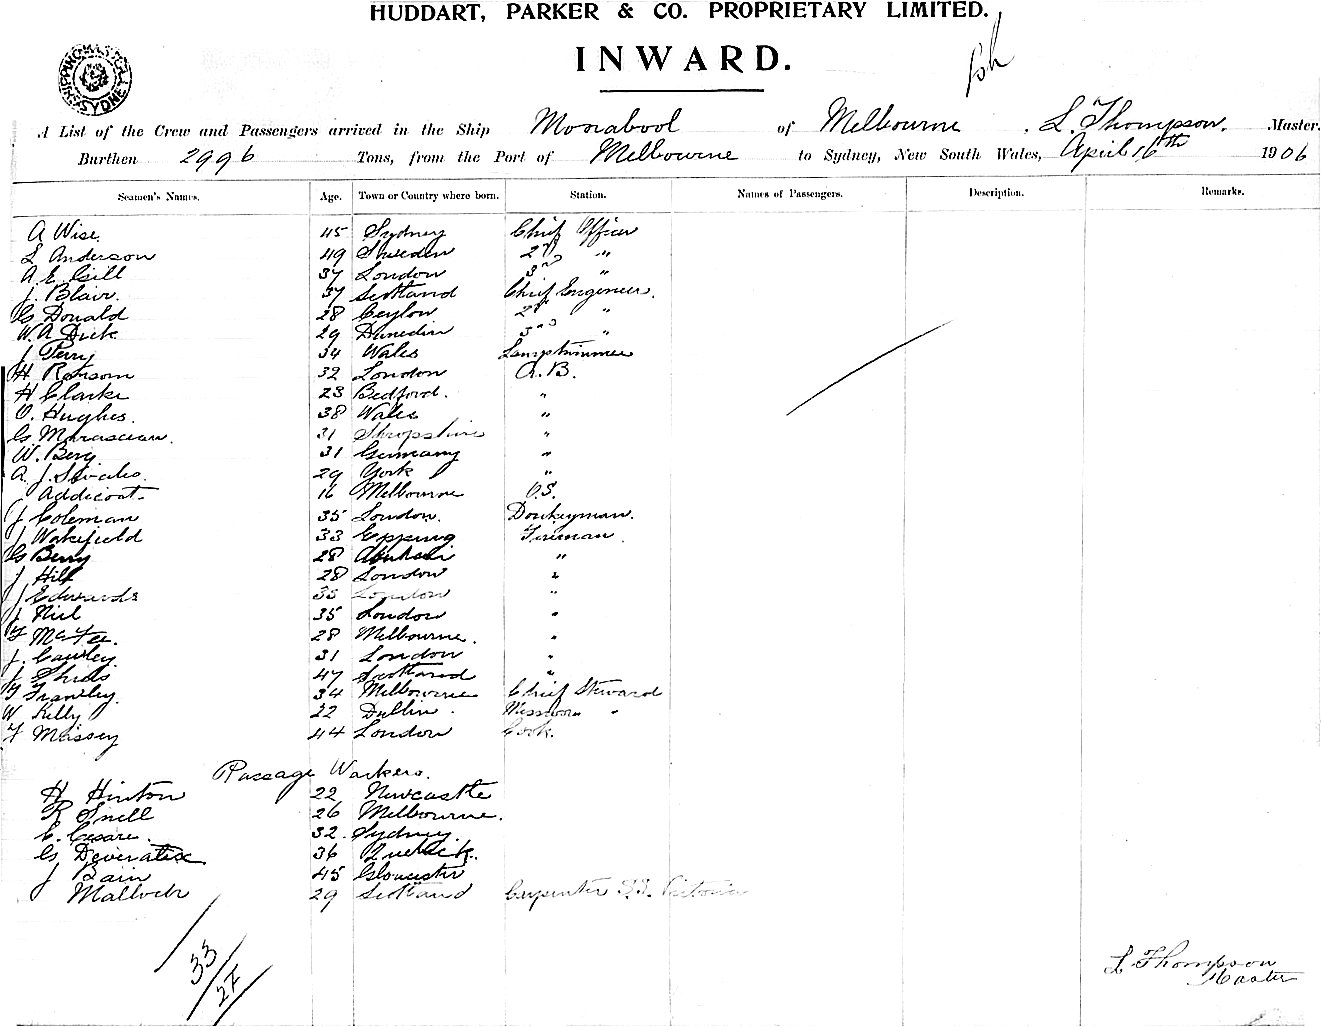 HUDDART, PARKER & CO. PROPRIETARY LIMITED.
INWARD.
SYDNEY
A List of the Crew and Passengers arrived in the Ship Monabool of Melbourne, L. Thompson, Master.
Burthen 2996 Tons, from the Port of Melbourne to Sydney, New South Wales, April 16th 1906
Seamen's Names. Age. Town or Country where born. Station. Names of Passengers. Description. Remarks.
A Wise 45 Sydney Chief Officer
L Anderson 49 Sweden 2nd "
A. E. Gill 37 London 3rd "
J. Blair. 37 Scotland Chief Engineer.
G Donald 28 Ceylon 2nd "
W. A Dick 29 Dunedin 3rd "
J Perry 34 Wales Lamptrimmer
H Ransom 32 London A.B.
H Clarke 23 Bedford. "
O. Hughes. 38 Wales "
G 31 Shropshire "
W. Berg 31 Germany "
A. J. 29 York "
Addicoat 16 Melbourne O.S.
J Coleman 35 London. Donkeyman.
J Wakefield 33 Epping Fireman.
G Berry 28 "
J Hill 28 London "
J Edwards 35 London "
J. Neil 35 London "
F McFee. 28 Melbourne. "
J. Cawley 31 London "
J 47 Scotland "
F Frawley. 34 Melbourne Chief Steward
W Kelly 22 Dublin. Messroom "
F Massey 44 London Cook.
Passage Workers.
H Hinton 22 Newcastle
R Snell 26 Melbourne.
C. Cesare. 32. Sydney.
G 36
J Bain 45 Gloucester
Malloch 29 Scotland Carpenter S.S. Victoria
33
2F
L Thompson
Master